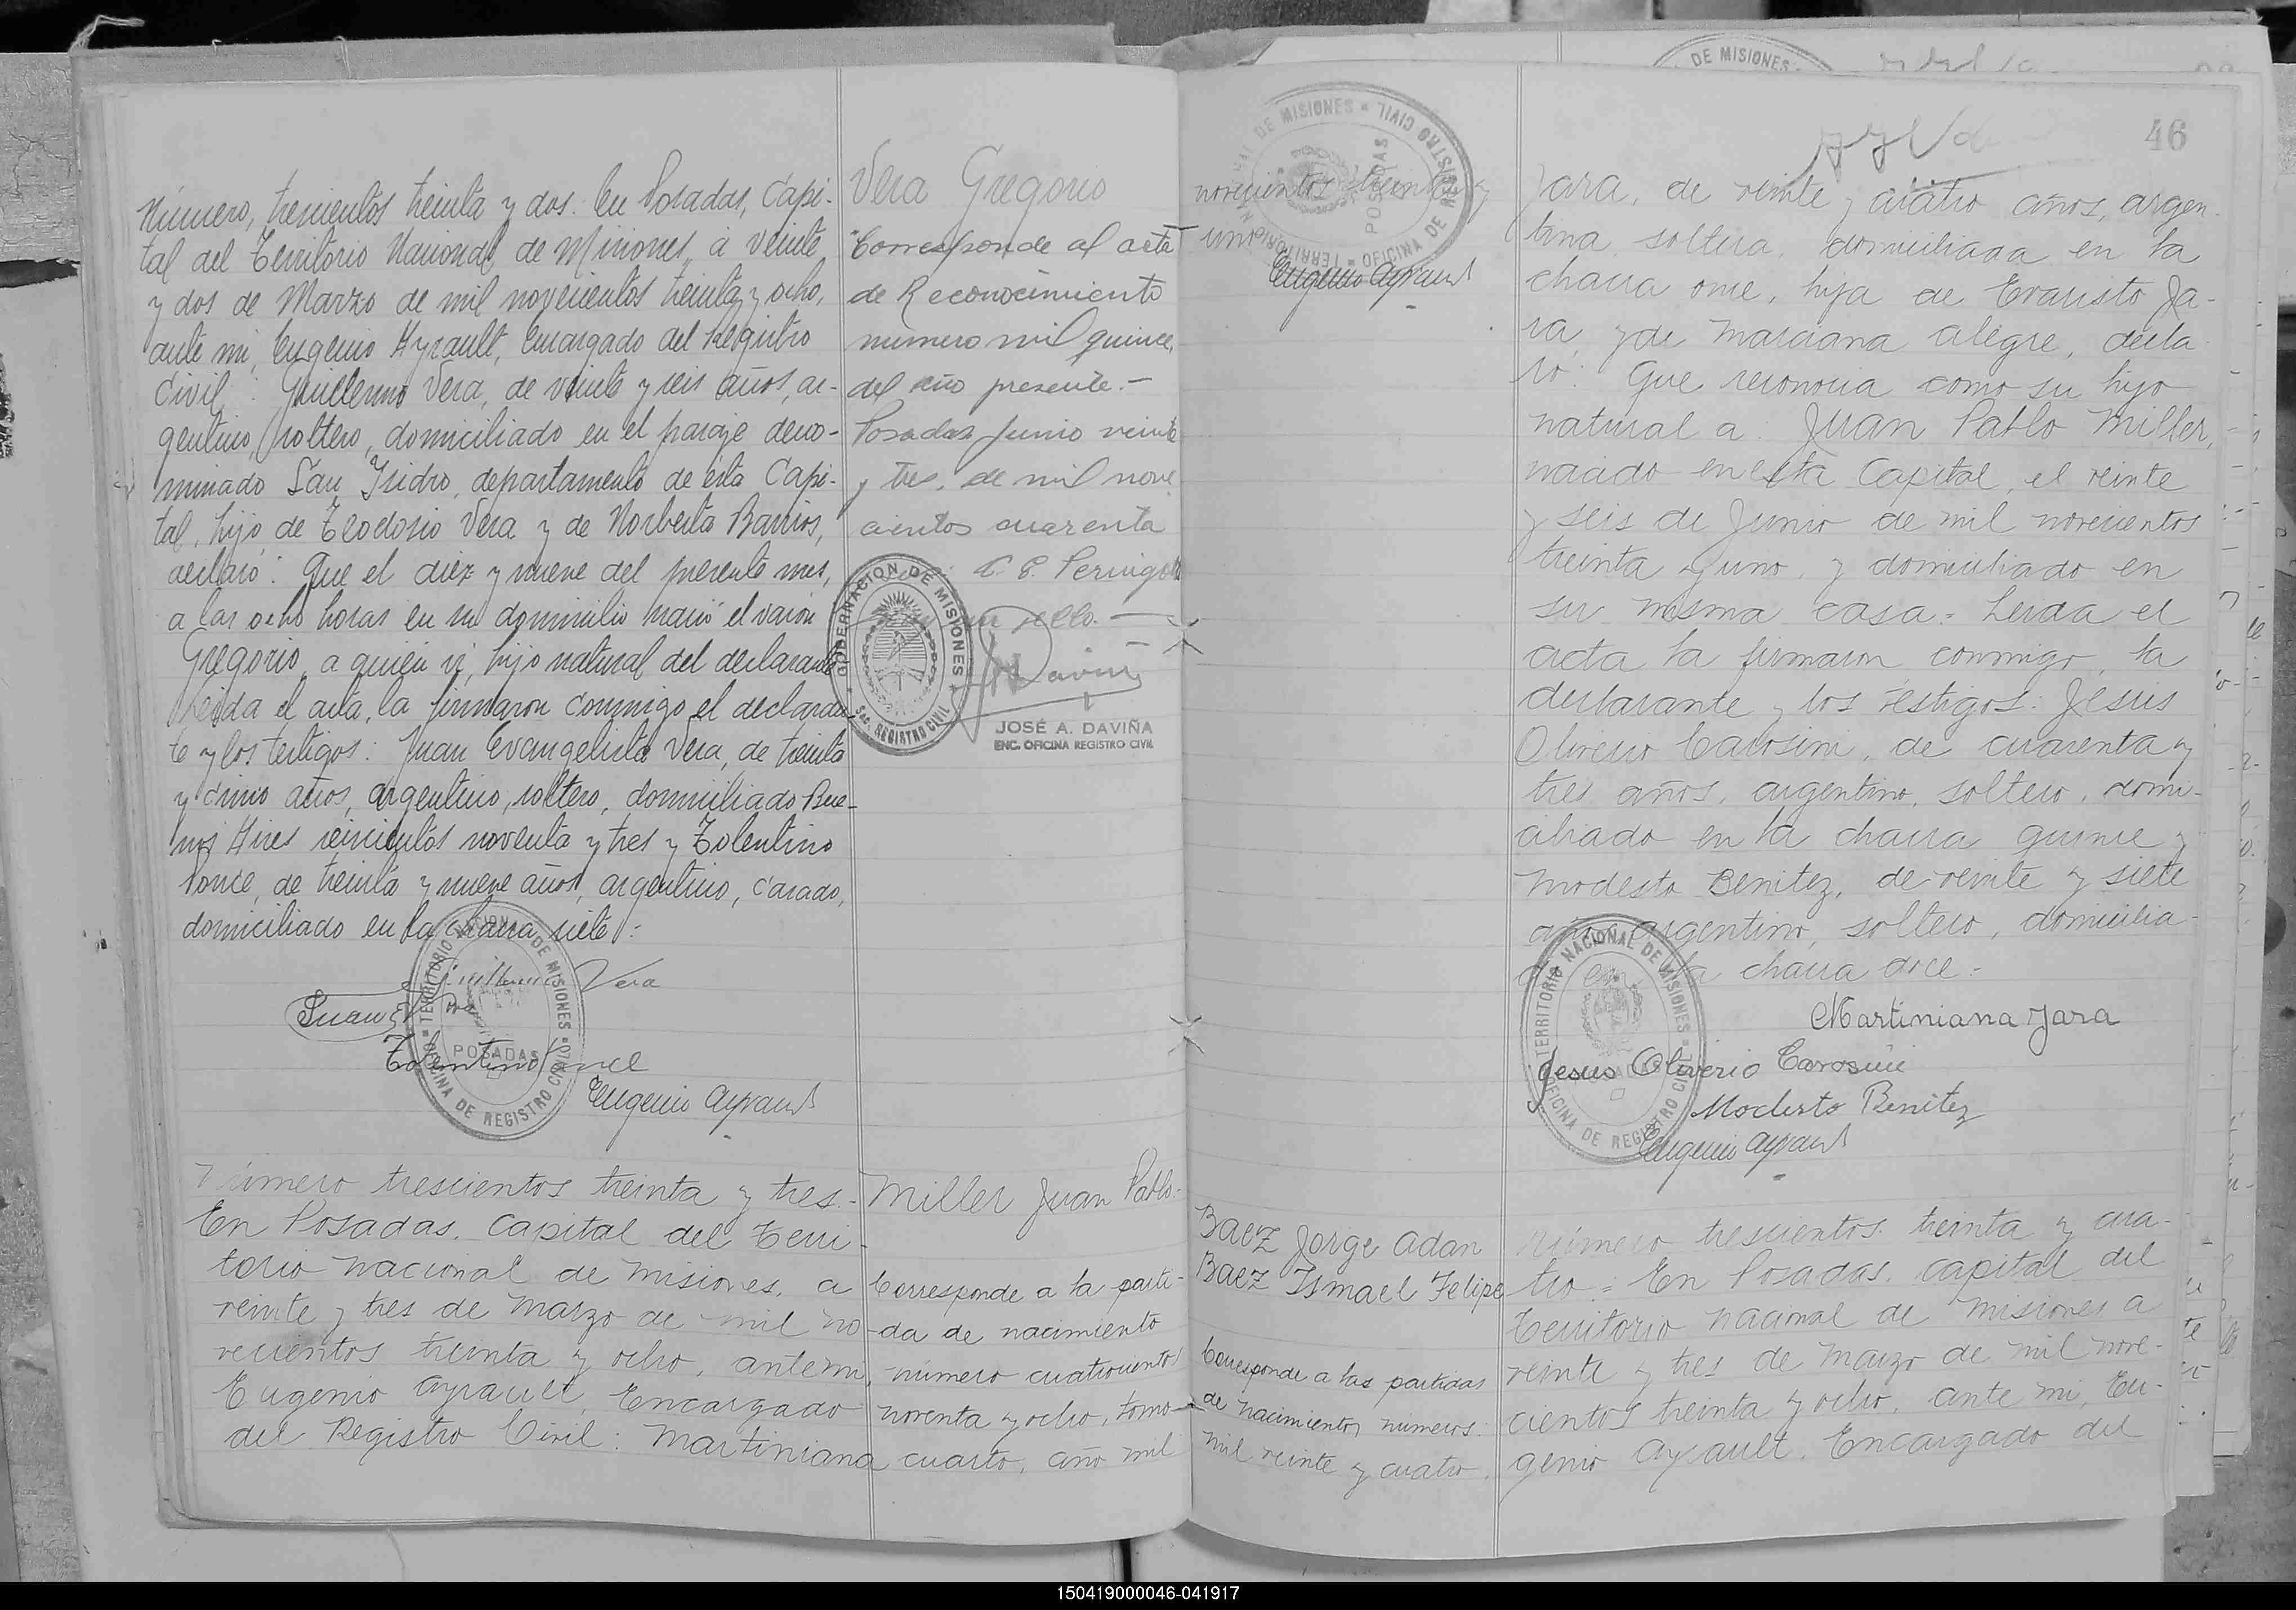 Número, trescientos treinta y dos. En Posadas, Capi-
tal del Territorio Nacional de Misiones, a veinte
y dos de Marzo de mil novecientos treinta y ocho,
ante mi, Eugenio Ayrault, Encargado del Registro
Civil: Guillermo Vera, de veinte y seis años, ar-
gentino, soltero, domiciliado en el paraje deno-
minado San Isidro, departamento de esta Capi-
tal, hijo de Teodosio Vera y de Norberta Barrios,
declaró: Que el diez y nueve del presente mes,
a las ocho horas en su domicilio nació el varón
Gregorio, a quien vi, hijo natural del declarante
Leida el acta, la firmaron conmigo el declaran-
te y los testigos: Juan Evangelista Vera, de treinta
y cinco años, argentino, soltero, domiciliado Bue-
nos Aires seiscientos noventa y tres y Tolentino
Ponce, de treinta y nueve años, argentino, casado,
domiciliado en la chacra siete:
Guillermo Vera
Juan E Vera
Tolentino Ponce
Eugenio Ayrault
TERRITORIO NACIONAL DE MISIONES
OFICINA DE REGISTRO CIVIL
POSADAS
Vera Gregorio
Corresponde al acta
de Reconocimiento
número mil quince,
del año presente.-
Posadas Junio veinte
y tres, de mil nove
cientos cuarenta
sello.-
GOBERNACION DE MISIONES
SEC. REGISTRO CIVIL
JOSÉ A. DAVIÑA
ENC. OFICINA REGISTRO CIVIL
Número trescientos treinta y tres.-
En Posadas, Capital del Terri-
torio Nacional de Misiones, a
veinte y tres de Marzo de mil no
vecientos treinta y ocho, ante mi,
Eugenio Ayrault, Encargado
del Registro Civil: Martiniana
Miller Juan Pablo.-
Corresponde a la parti-
da de nacimiento
número cuatrocientos
noventa y ocho, tomo
cuarto, año mil
TERRITORIO NACIONAL DE MISIONES
OFICINA DE REGISTRO CIVIL
POSADAS
novecientos treinta y
uno
Eugenio Ayrault
DE MISIONES
46
Jara, de veinte y cuatro años, argen-
tina, soltera, domiciliada en la
chacra once, hija de Evaristo Ja-
ra, y de Marciana Alegre, decla-
ró: Que reconocia como su hijo
natural a Juan Pablo Miller,
nacido en esta Capital, el veinte
y seis de Junio de mil novecientos
treinta y uno, y domiciliado en
su misma casa. Leida el
acta la firmaron conmigo, la
declarante y los testigos: Jesús
Oliverio Carosini, de cuarenta y
tres años, argentino, soltero, domi-
ciliado en la chacra quince y
Modesto Benitez, de veinte y siete
años argentino, soltero, domicilia-
do en la chacra doce.-
Martiniana Jara
Jesus Oliverio Carosini
Modesto Benitez
Eugenio Ayrault
TERRITORIO NACIONAL DE MISIONES
OFICINA DE REGISTRO CIVIL
POSADAS
Baez Jorge Adan
Baez Ismael Felipe
Corresponde a las partidas
de nacimientos números
mil veinte y cuatro,
Número trescientos treinta y cua-
tro.- En Posadas, Capital del
Territorio Nacional de Misiones a
veinte y tres de Marzo de mil nove-
cientos treinta y ocho, ante mi, Eu-
genio Ayrault, Encargado del
150419000046-041917